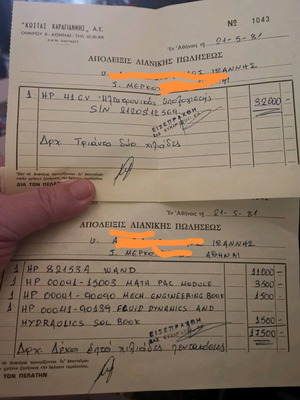 "ΚΩΣΤΑΣ ΚΑΡΑΓΙΑΝΝΗΣ„ Α.Ε.
ΟΜΗΡΟΥ 8 - ΑΘΗΝΑΙ - ΤΗΛ.
Nº 1043
Ἐν Ἀθήναις τῇ 21-5-81
ΑΠΟΔΕΙΞΙΣ ΛΙΑΝΙΚΗΣ ΠΩΛΗΣΕΩΣ
ΙΩΑΝΝΗΣ
Ι. ΜΕΡΚΟ
1 HP 41CV Ἠλεκτρονικός Ὑπολογιστής 32000 -
S/N
ΕΙΣΕΠΡΑΧΘΗ
Δρχ. Τριάντα δύο χιλιάδες
ΔΙΑ ΤΟΝ ΠΕΛΑΤΗΝ
Ἐν Ἀθήναις τῇ 21-5-81
ΑΠΟΔΕΙΞΙΣ ΛΙΑΝΙΚΗΣ ΠΩΛΗΣΕΩΣ
ΙΩΑΝΝΗΣ
Ι. ΜΕΡΚΟ ΑΘΗΝΑΙ
1 HP 82153A WAND 11000 -
1 HP 00041-15003 MATH PAC MODULE 3500 -
1 HP 00041-90090 MECH. ENGINEERING BOOK 1500 -
1 HP 00041-90139 FLUID DYNAMICS AND
HYDRAULICS SOL BOOK 1500 -
ΕΙΣΕΠΡΑΧΘΗ
17500 -
Δρχ. Δέκα ἑπτά χιλιάδες πεντακόσιες
ΔΙΑ ΤΟΝ ΠΕΛΑΤΗΝ